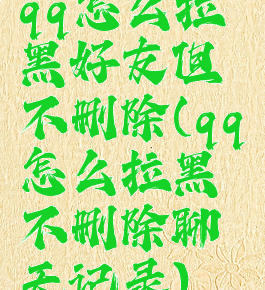 qq怎么拉
黑好友但
不删除(qq
怎么拉黑
不删除聊
天记录)